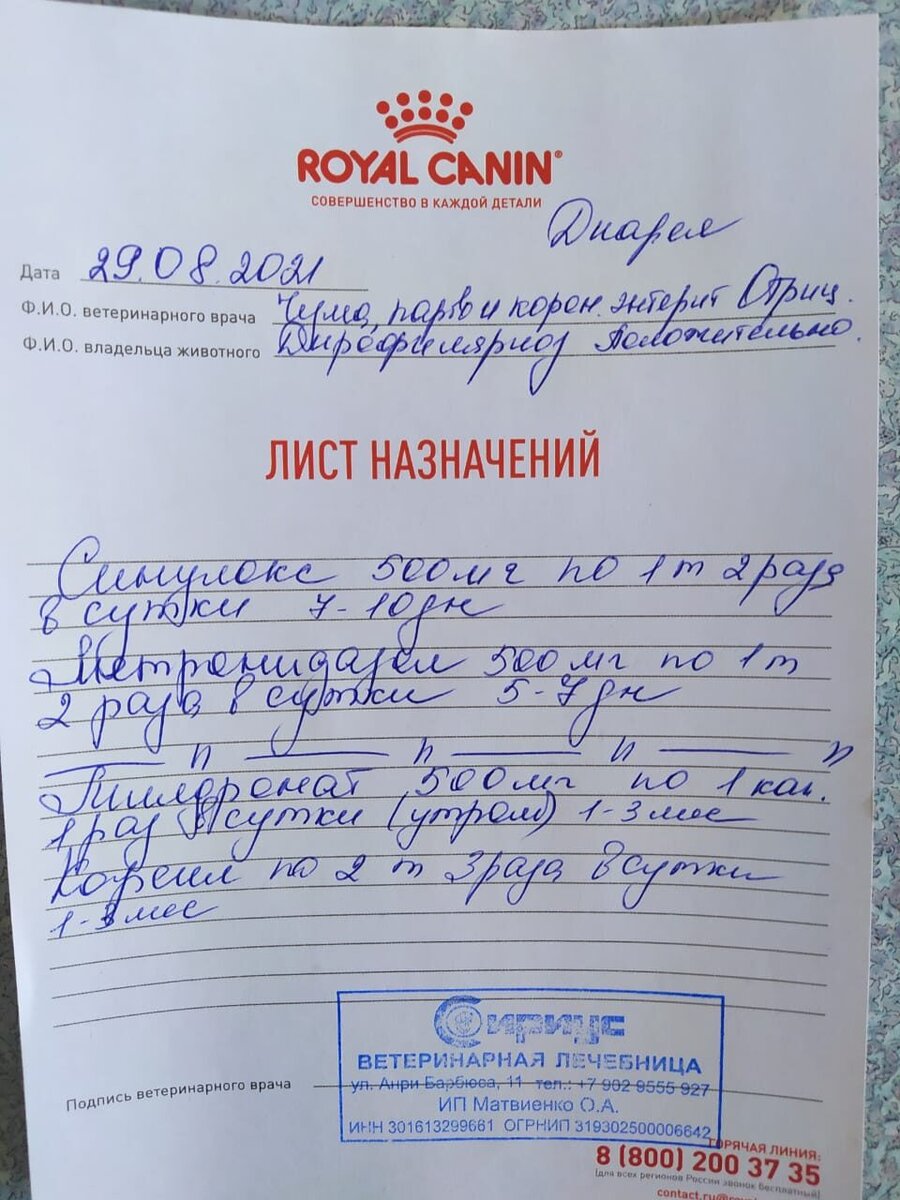 ROYAL CANIN®
СОВЕРШЕНСТВО В КАЖДОЙ ДЕТАЛИ
Диарея
Дата 29.08.2021
Ф.И.О. ветеринарного врача Чума, парво и корон. энтерит Отриц.
Ф.И.О. владельца животного Дирофиляриоз Положительно.
ЛИСТ НАЗНАЧЕНИЙ
Синулокс 500мг по 1т 2 раза
в сутки 7-10дн
Метронидазол 500мг по 1т
2 раза в сутки 5-7дн
п п п п
500мг по 1 кап.
1 раз в сутки (утром) 1-3 мес
по 2 т 3 раза в сутки
1-3 мес
Сириус
ВЕТЕРИНАРНАЯ ЛЕЧЕБНИЦА
ул. Анри Барбюса, 11 тел.: +7 902 9555 927
Подпись ветеринарного врача
ИП Матвиенко О.А.
ИНН 301613299661 ОГРНИП 319302500006642
ГОРЯЧАЯ ЛИНИЯ:
8 (800) 200 37 35
(для всех регионов России звонок бесплатный)